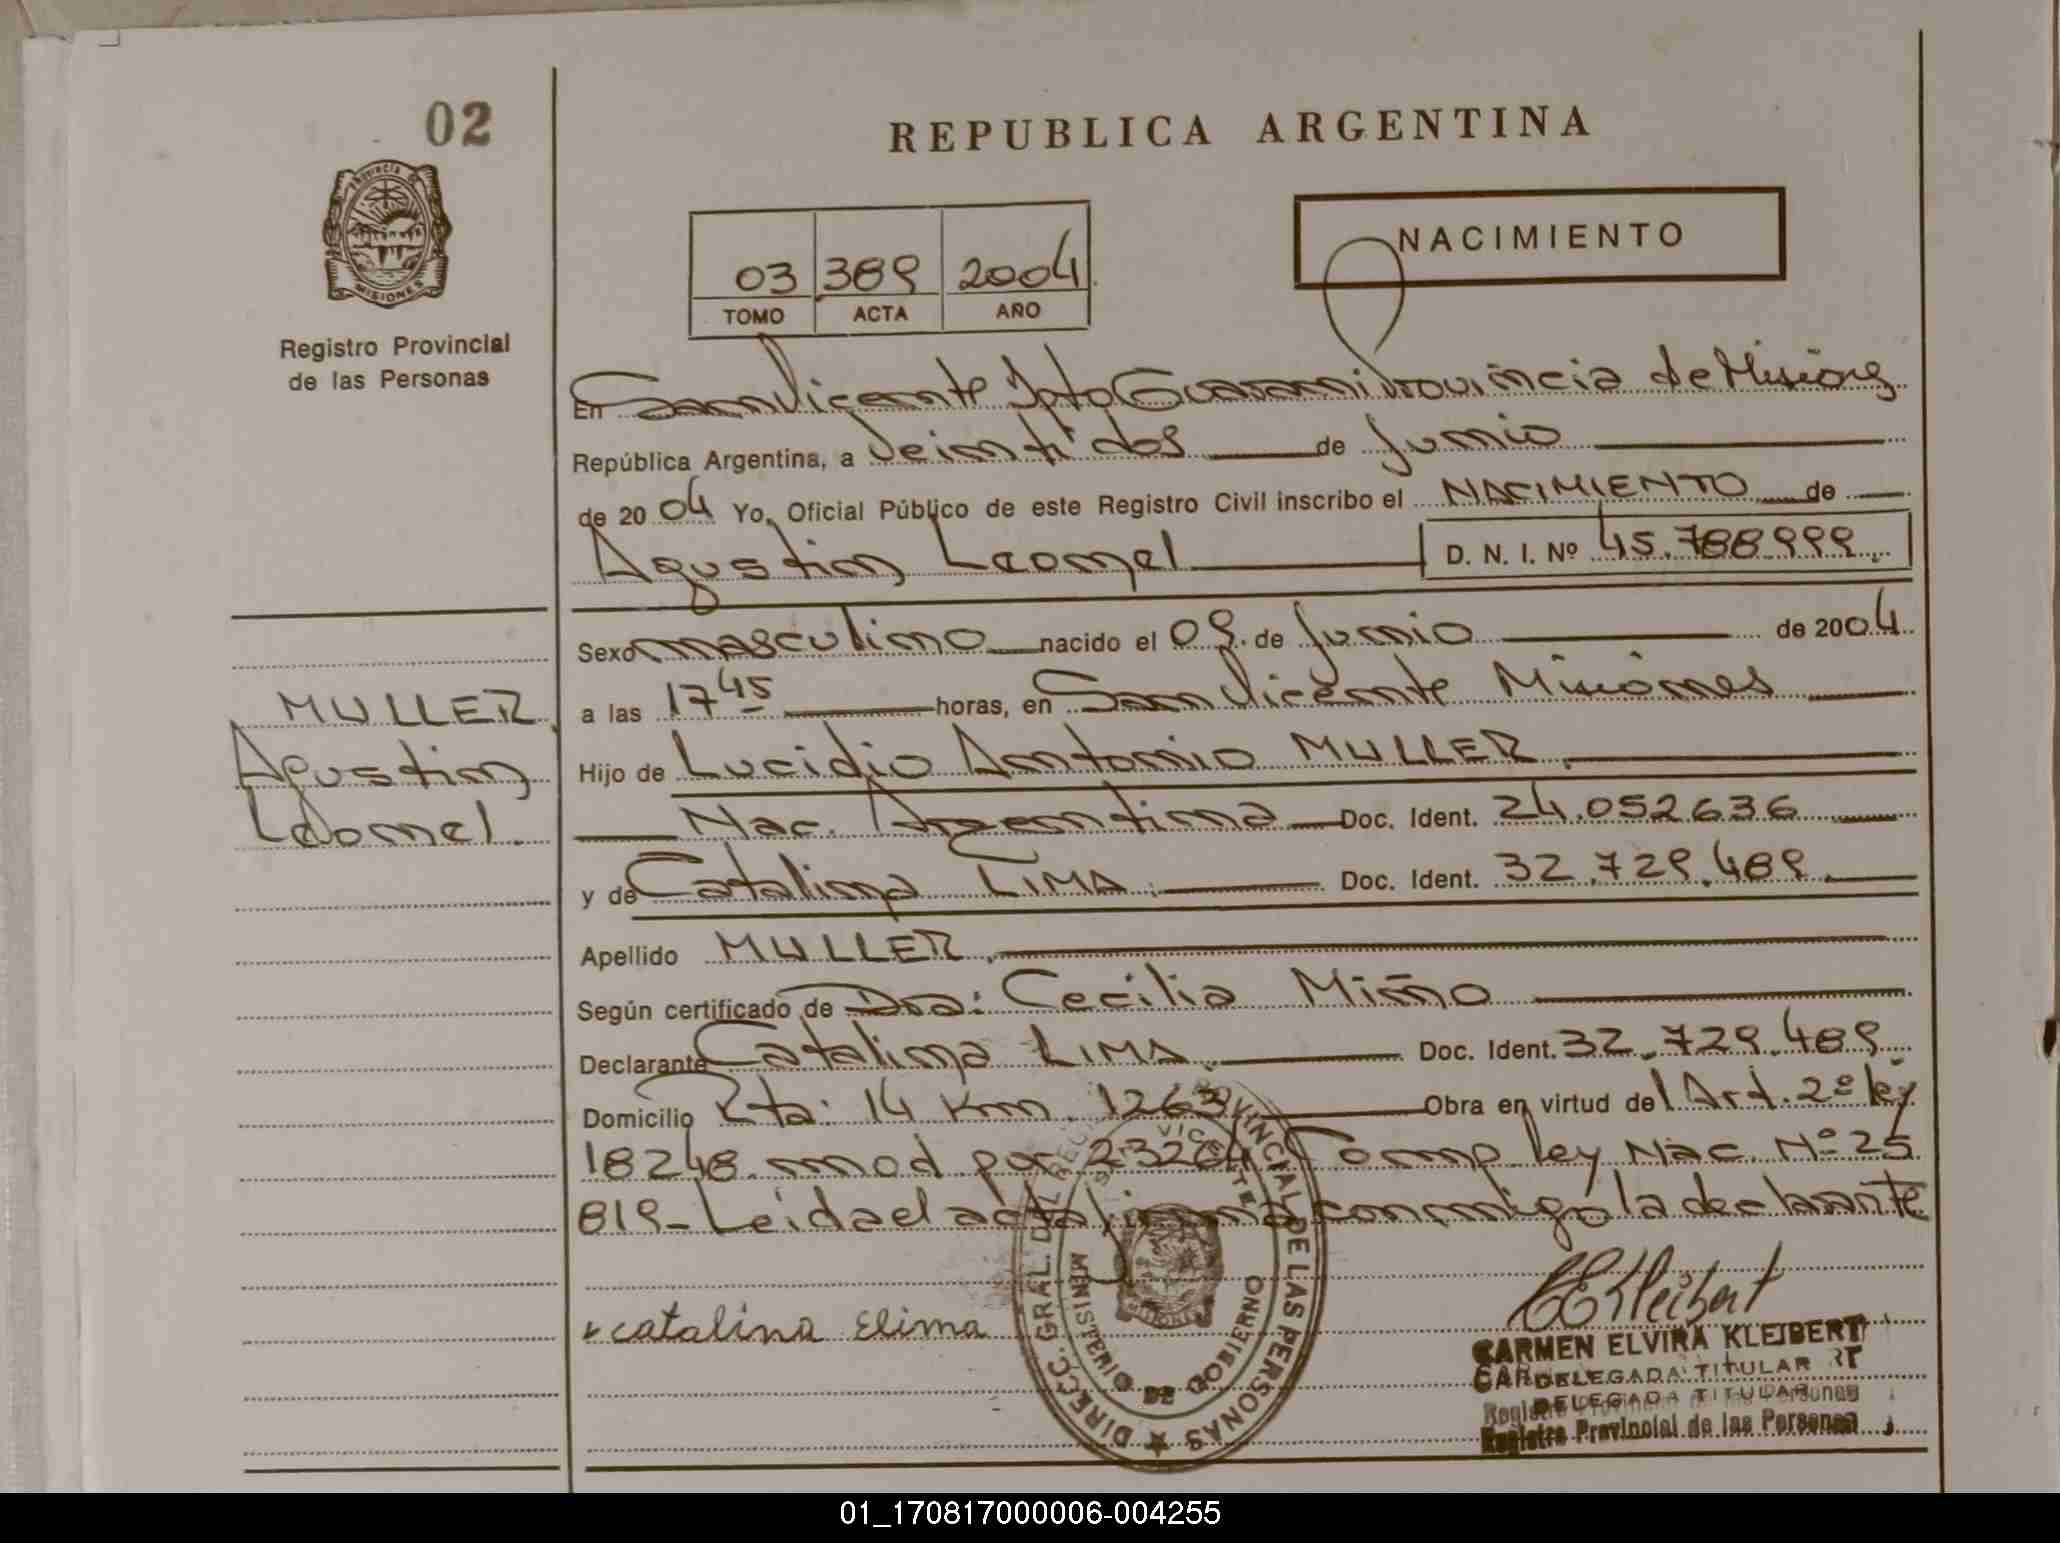 02
REPUBLICA ARGENTINA
NACIMIENTO
03 389 2004
TOMO ACTA AÑO
PROVINCIA DE MISIONES
Registro Provincial
de las Personas
En San Vicente Dpto Guarani Provincia de Misiones
República Argentina, a veintidos de Junio
de 2004 Yo, Oficial Público de este Registro Civil inscribo el NACIMIENTO de
Agustin Leonel D. N. I. Nº 45.788.999
Sexo masculino nacido el 09 de Junio de 2004
MULLER
Agustin
Leonel
a las 17 45 horas, en San Vicente Misiones
Hijo de Lucidio Antonio MULLER
Nac. Argentina Doc. Ident. 24.052636
y de Catalina LIMA Doc. Ident. 32.729.489
Apellido MULLER
Según certificado de Dra: Cecilia Miño
Declarante Catalina LIMA Doc. Ident. 32.729.489
Domicilio Rta: 14 Km. 1263 Obra en virtud del Art. 2º ley
18248 mod por 23264 Comp ley Nac. Nº 25
819_ Leida el acta firma conmigo la declarante
catalina Elima
DIRECC. GRAL. DEL REG. PROVINCIAL DE LAS PERSONAS
SAN VICENTE
MISIONES
MINISTERIO DE GOBIERNO
CARMEN ELVIRA KLEIBERT
DELEGADA TITULAR
DELEGADA TITULAR
Registro Provincial de las Personas
01_170817000006-004255